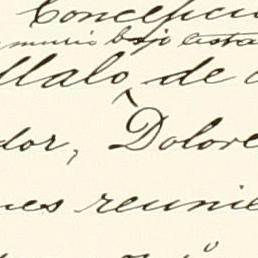 Concepcio
murio bajo esta
llalo de
dor, Dolore
nes reunie